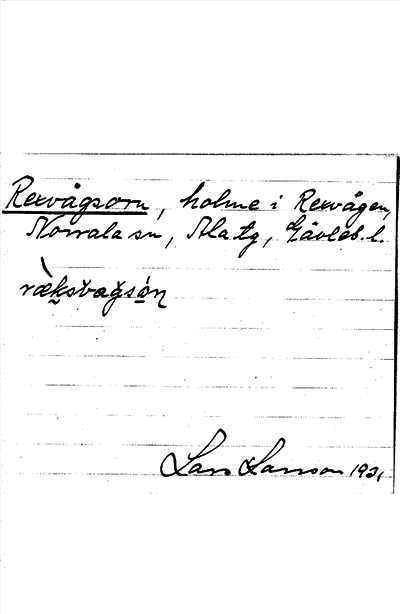 Rexvågsörn, holme i Rexvågen,
Norrala sn, Ala tg, Gävleb. l.
ræksvagsön
Lars Larsson 1931